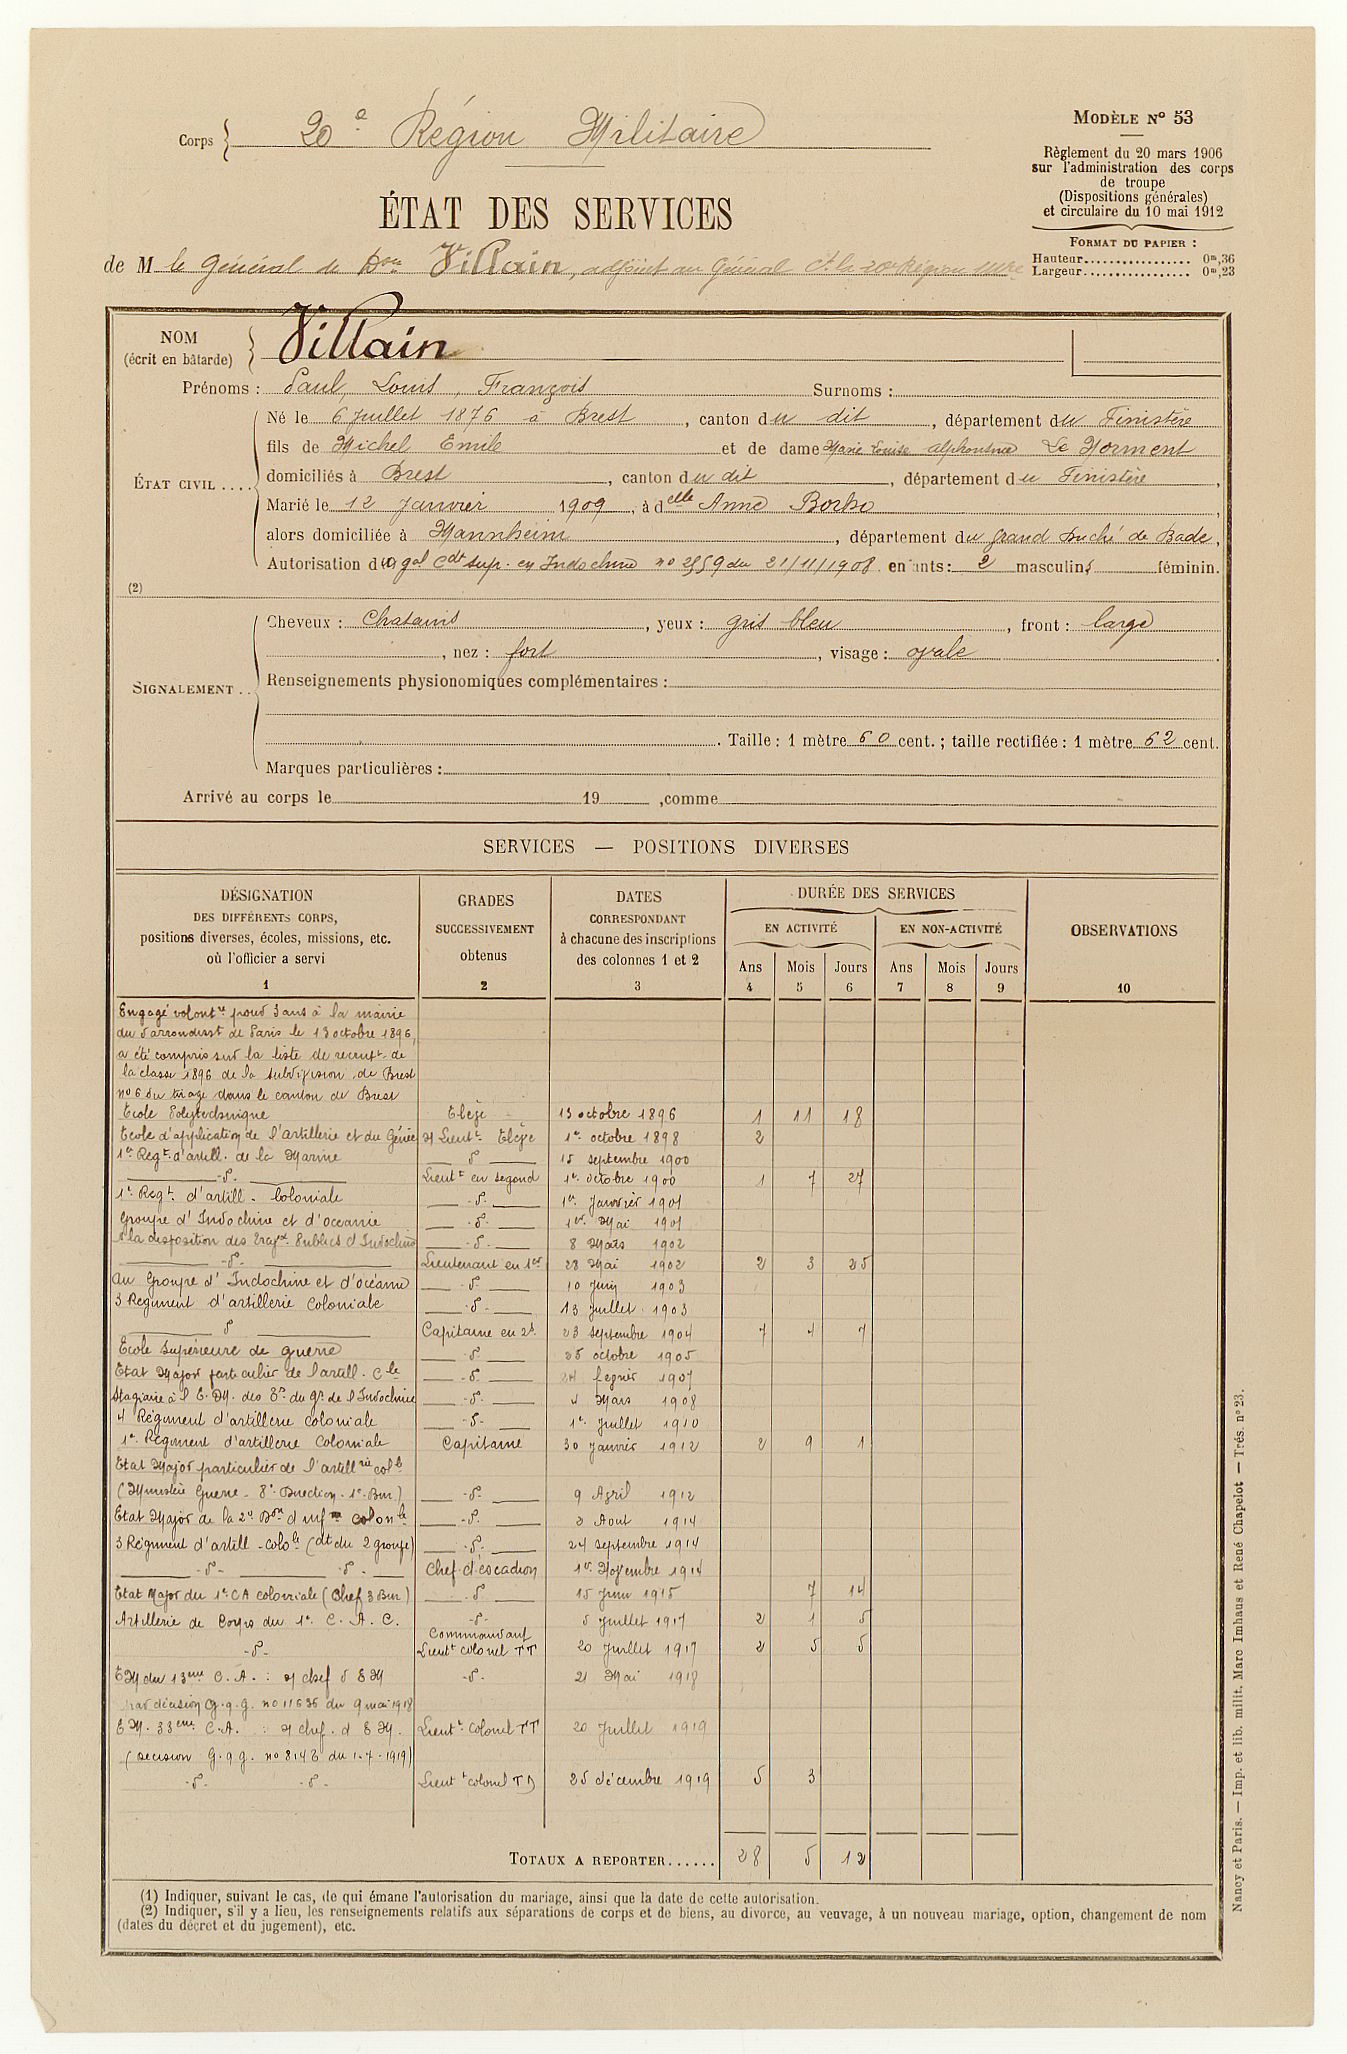 Corps 20e Région Militaire
MODÈLE No 53
Règlement du 20 mars 1906
sur l'administration des corps
de troupe
(Dispositions générales)
et circulaire du 10 mai 1912
FORMAT DU PAPIER :
Hauteur................. 0m,36
Largeur................. 0m,23
ÉTAT DES SERVICES
de M le Général de Don Villain, adjoint au Général Ct la 20e Région Mre
NOM
(écrit en bâtarde)
Villain
Prénoms : Paul, Louis, François Surnoms :
Né le 6 Juillet 1876 à Brest, canton du dit, département du Finistère
fils de Michel Emile et de dame Marie Louise Alphonsine Le Norment
ÉTAT CIVIL ....
domiciliés à Brest, canton du dit, département du Finistère,
Marié le 12 Janvier 1909, à delle Anne Borho,
alors domiciliée à Mannheim, département du grand Duché de Bade,
Autorisation du (1) gal Cdt sup. en Indochine no 2559 du 21/11/1908. enfants: 2 masculins féminin.
(2)
SIGNALEMENT ..
Cheveux : Chatains, yeux : gris bleu, front : large
, nez : fort, visage : ovale.
Renseignements physionomiques complémentaires :
. Taille : 1 mètre 60 cent. ; taille rectifiée : 1 mètre 62 cent.
Marques particulières :
Arrivé au corps le 19 , comme
SERVICES — POSITIONS DIVERSES
DÉSIGNATION
DES DIFFÉRENTS CORPS,
positions diverses, écoles, missions, etc.
où l'officier a servi
1
GRADES
SUCCESSIVEMENT
obtenus
2
DATES
CORRESPONDANT
à chacune des inscriptions
des colonnes 1 et 2
3
DURÉE DES SERVICES
EN ACTIVITÉ EN NON-ACTIVITÉ
Ans Mois Jours Ans Mois Jours
4 5 6 7 8 9
OBSERVATIONS
10
Engagé volontre pour 3 ans à la mairie
du 5 arrondisst de Paris le 13 octobre 1896,
a été compris sur la liste de recrutt de
la classe 1896 de la subdivision de Brest
no 6 du tirage dans le canton de Brest
Ecole Polytechnique Elève 13 octobre 1896 1 11 18
Ecole d'application de l'artillerie et du Génie s/ Lieutt Elève 1er octobre 1898 2
1er Regt d'artill. de la Marine d 15 septembre 1900
-d- Lieutt en second 1er octobre 1900 1 7 27
1er Regt d'artill. Coloniale -d- 1er Janvier 1901
Groupe d'Indochine et d'océanie -d- 1er Mai 1901
A la disposition des Travx Publics d'Indochine -d- 8 Mars 1902
-d- Lieutenant en 1er 28 Mai 1902 2 3 25
au Groupe d'Indochine et d'océanie -d- 10 Juin 1903
3 Regiment d'artillerie Coloniale -d- 13 Juillet 1903
d Capitaine en 2d 23 septembre 1904 7 4 7
Ecole Supérieure de guerre -d- 25 octobre 1905
Etat Major particulier de l'artill. Cle -d- 24 fevrier 1907
Stagiaire à l'E. M. des Tes du ge de l'Indochine -d- 4 Mars 1908
4 Régiment d'artillerie coloniale -d- 1er Juillet 1910
1er Régiment d'artillerie Coloniale Capitaine 30 Janvier 1912 2 9 1
Etat Major particulier de l'artillrie colle
(Ministère Guerre - 8e Direction - 1er Bur.) -d- 9 Avril 1912
Etat Major de la 2e Don d'infie colonle -d- 2 Aout 1914
3 Régiment d'artill - cole (Cdt du 2 groupe) -d- 24 septembre 1914
-d- -d- Chef d'escadron 1er Novembre 1914
Etat Major du 1er CA coloniale (Chef 3 Bur) d 15 Juin 1915 7 14
Artillerie de Corps du 1er C. A. C. -d- 5 Juillet 1917 2 1 5
Commandant
-d- Lieutt colonel TT 20 Juillet 1917 2 5 5
EM du 13eme C. A. : s/ chef d EM -d- 21 Mai 1918
par décision G.q.g. no 11636 du 9 mai 1918
EM. 33eme C.A. : s/ chef. d EM. Lieutt colonel TT 20 Juillet 1919
(décision G. q g. no 8143 du 1-7-1919)
-d- -d- Lieutt colonel TD 25 décembre 1919 5 3
TOTAUX A REPORTER...... 28 5 12
(1) Indiquer, suivant le cas, de qui émane l'autorisation du mariage, ainsi que la date de cette autorisation.
(2) Indiquer, s'il y a lieu, les renseignements relatifs aux séparations de corps et de biens, au divorce, au veuvage, à un nouveau mariage, option, changement de nom
(dates du décret et du jugement), etc.
Nancy et Paris. — Imp. et lib. milit. Marc Imhaus et René Chapelot — Trés. no 23.